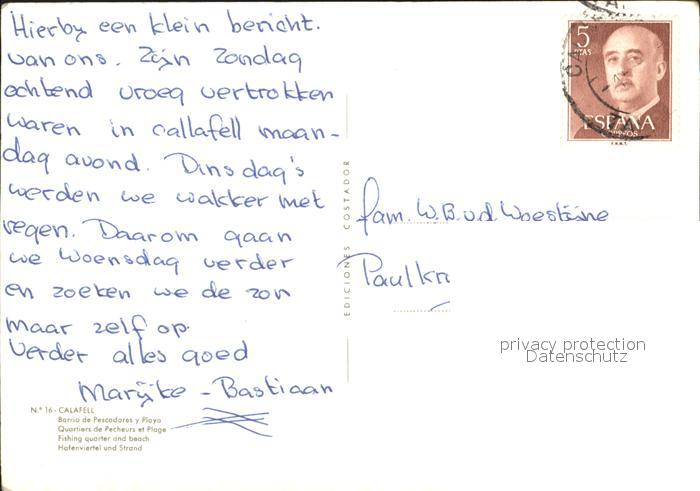 Hierby een klein bericht.
van ons. Zijn Zondag
ochtend vroeg vertrokken
waren in callafell maan-
dag avond. Dinsdag's
werden we wakker met
regen. Daarom gaan
we Woensdag verder
en zoeken we de zon
maar zelf op.
Verder alles goed
Marijke - Bastiaan
Nº 16 - CALAFELL
Barrio de Pescadores y Playa
Quartiers de Pecheurs et Plage
Fishing quarter and beach
Hafenviertel und Strand
EDICIONES COSTADOR
5
PTAS
ESPAÑA
CORREOS
F.N.M.T.
fam. W.B.v.d. Woestijne
Paulkr
privacy protection
Datenschutz